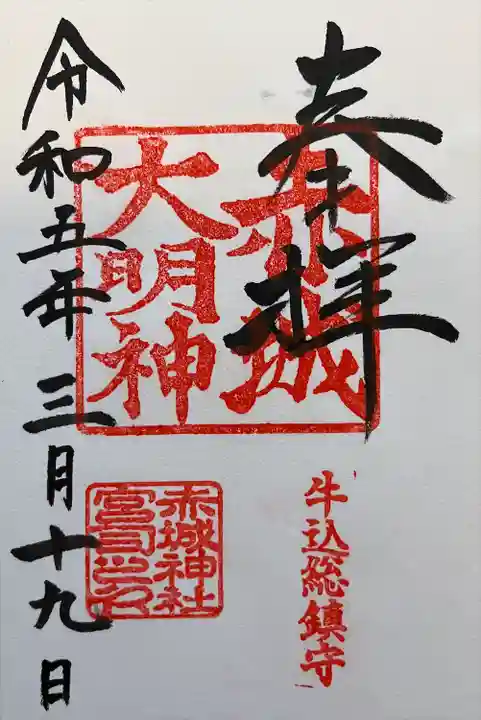 奉拝
赤城
大明神
牛込総鎮守
赤城神社
宮司之印
令和五年 三月十九日